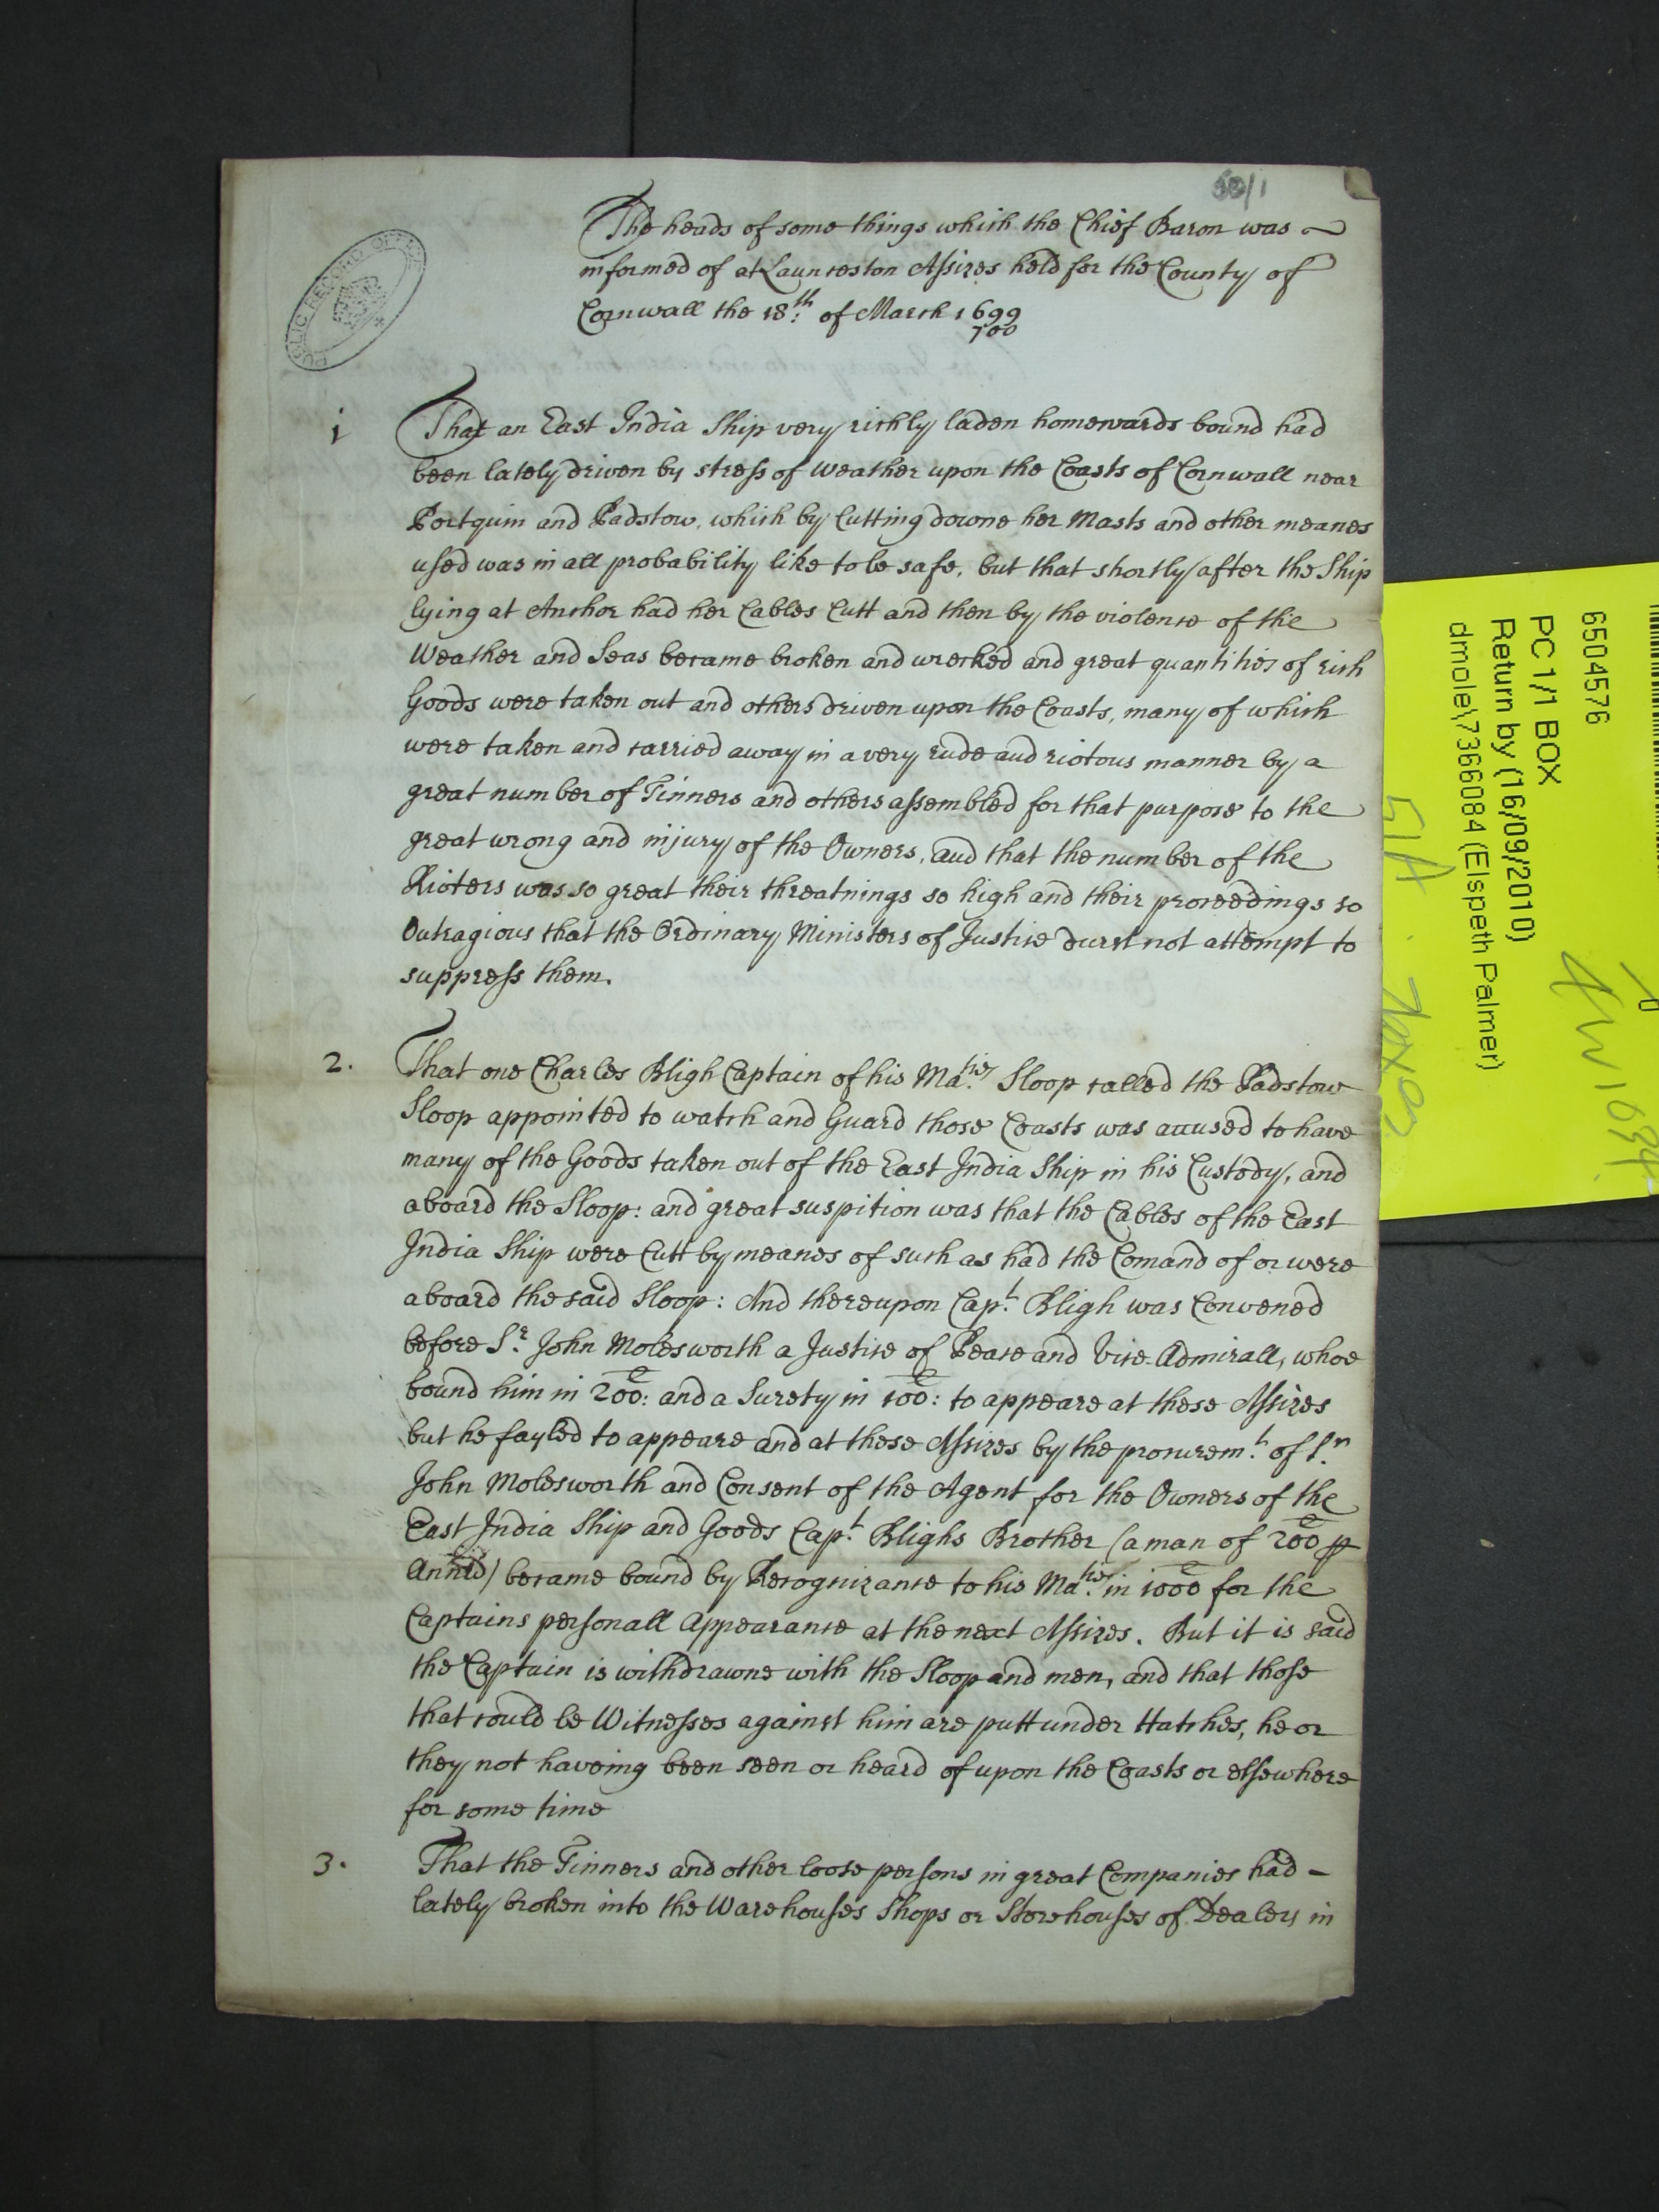 50/1
The heads of some things which the Chief Baron was
informed of at Launceston Assizes held for the County of
Cornwall the 18th: of March 1699
700
PUBLIC RECORD OFFICE
1 That an East India Ship very richly laden homewards bound had
been lately driven by stress of weather upon the Coasts of Cornwall near
Portquin and Padstow, which by Cutting downe her Masts and other meanes
used was in all probability like to be safe, but that shortly after the Ship
lying at Anchor had her Cables Cutt and then by the violence of the
Weather and Seas became broken and wrecked and great quantities of rich
Goods were taken out and others driven upon the Coasts, many of which
were taken and carried away in a very rude and riotous manner by a
great number of Tinners and others assembled for that purpose to the
great wrong and injury of the Owners, and that the number of the
Rioters was so great their threatnings so high and their proceedings so
Outragious that the Ordinary Ministers of Justice durst not attempt to
suppress them.
2. That one Charles Bligh Captain of his Ma:ties Sloop called the Padstow
Sloop appointed to watch and Guard those Coasts was accused to have
many of the Goods taken out of the East India Ship in his Custody, and
aboard the Sloop: and great suspition was that the Cables of the East
India Ship were Cutt by meanes of such as had the Comand of or were
aboard the said Sloop: And thereupon Cap:t Bligh was Convened
before S:r John Molesworth a Justice of Peace and Vice Admirall, whoe
bound him in 200: and a Surety in 100: to appeare at these Assizes
but he fayled to appeare and at these Assizes by the procurem:t of S:r
John Molesworth and Consent of the Agent for the Owners of the
East India Ship and Goods Cap:t Blighs Brother (a man of 200 p
Annū) became bound by Recognizance to his Ma:tie in 1000 for the
Captains personall Appearance at the next Assizes. But it is said
the Captain is withdrawne with the Sloop and men, and that those
that could be Witnesses against him are putt under Hatches, he or
they not haveing been seen or heard of upon the Coasts or elsewhere
for some time
3. That the Tinners and other loose persons in great Companies had -
lately broken into the Warehouses Shops or Storehouses of Dealers in
6504576
PC 1/1 BOX
Return by (16/09/2010)
dmole\7366084 (Elspeth Palmer)
51A